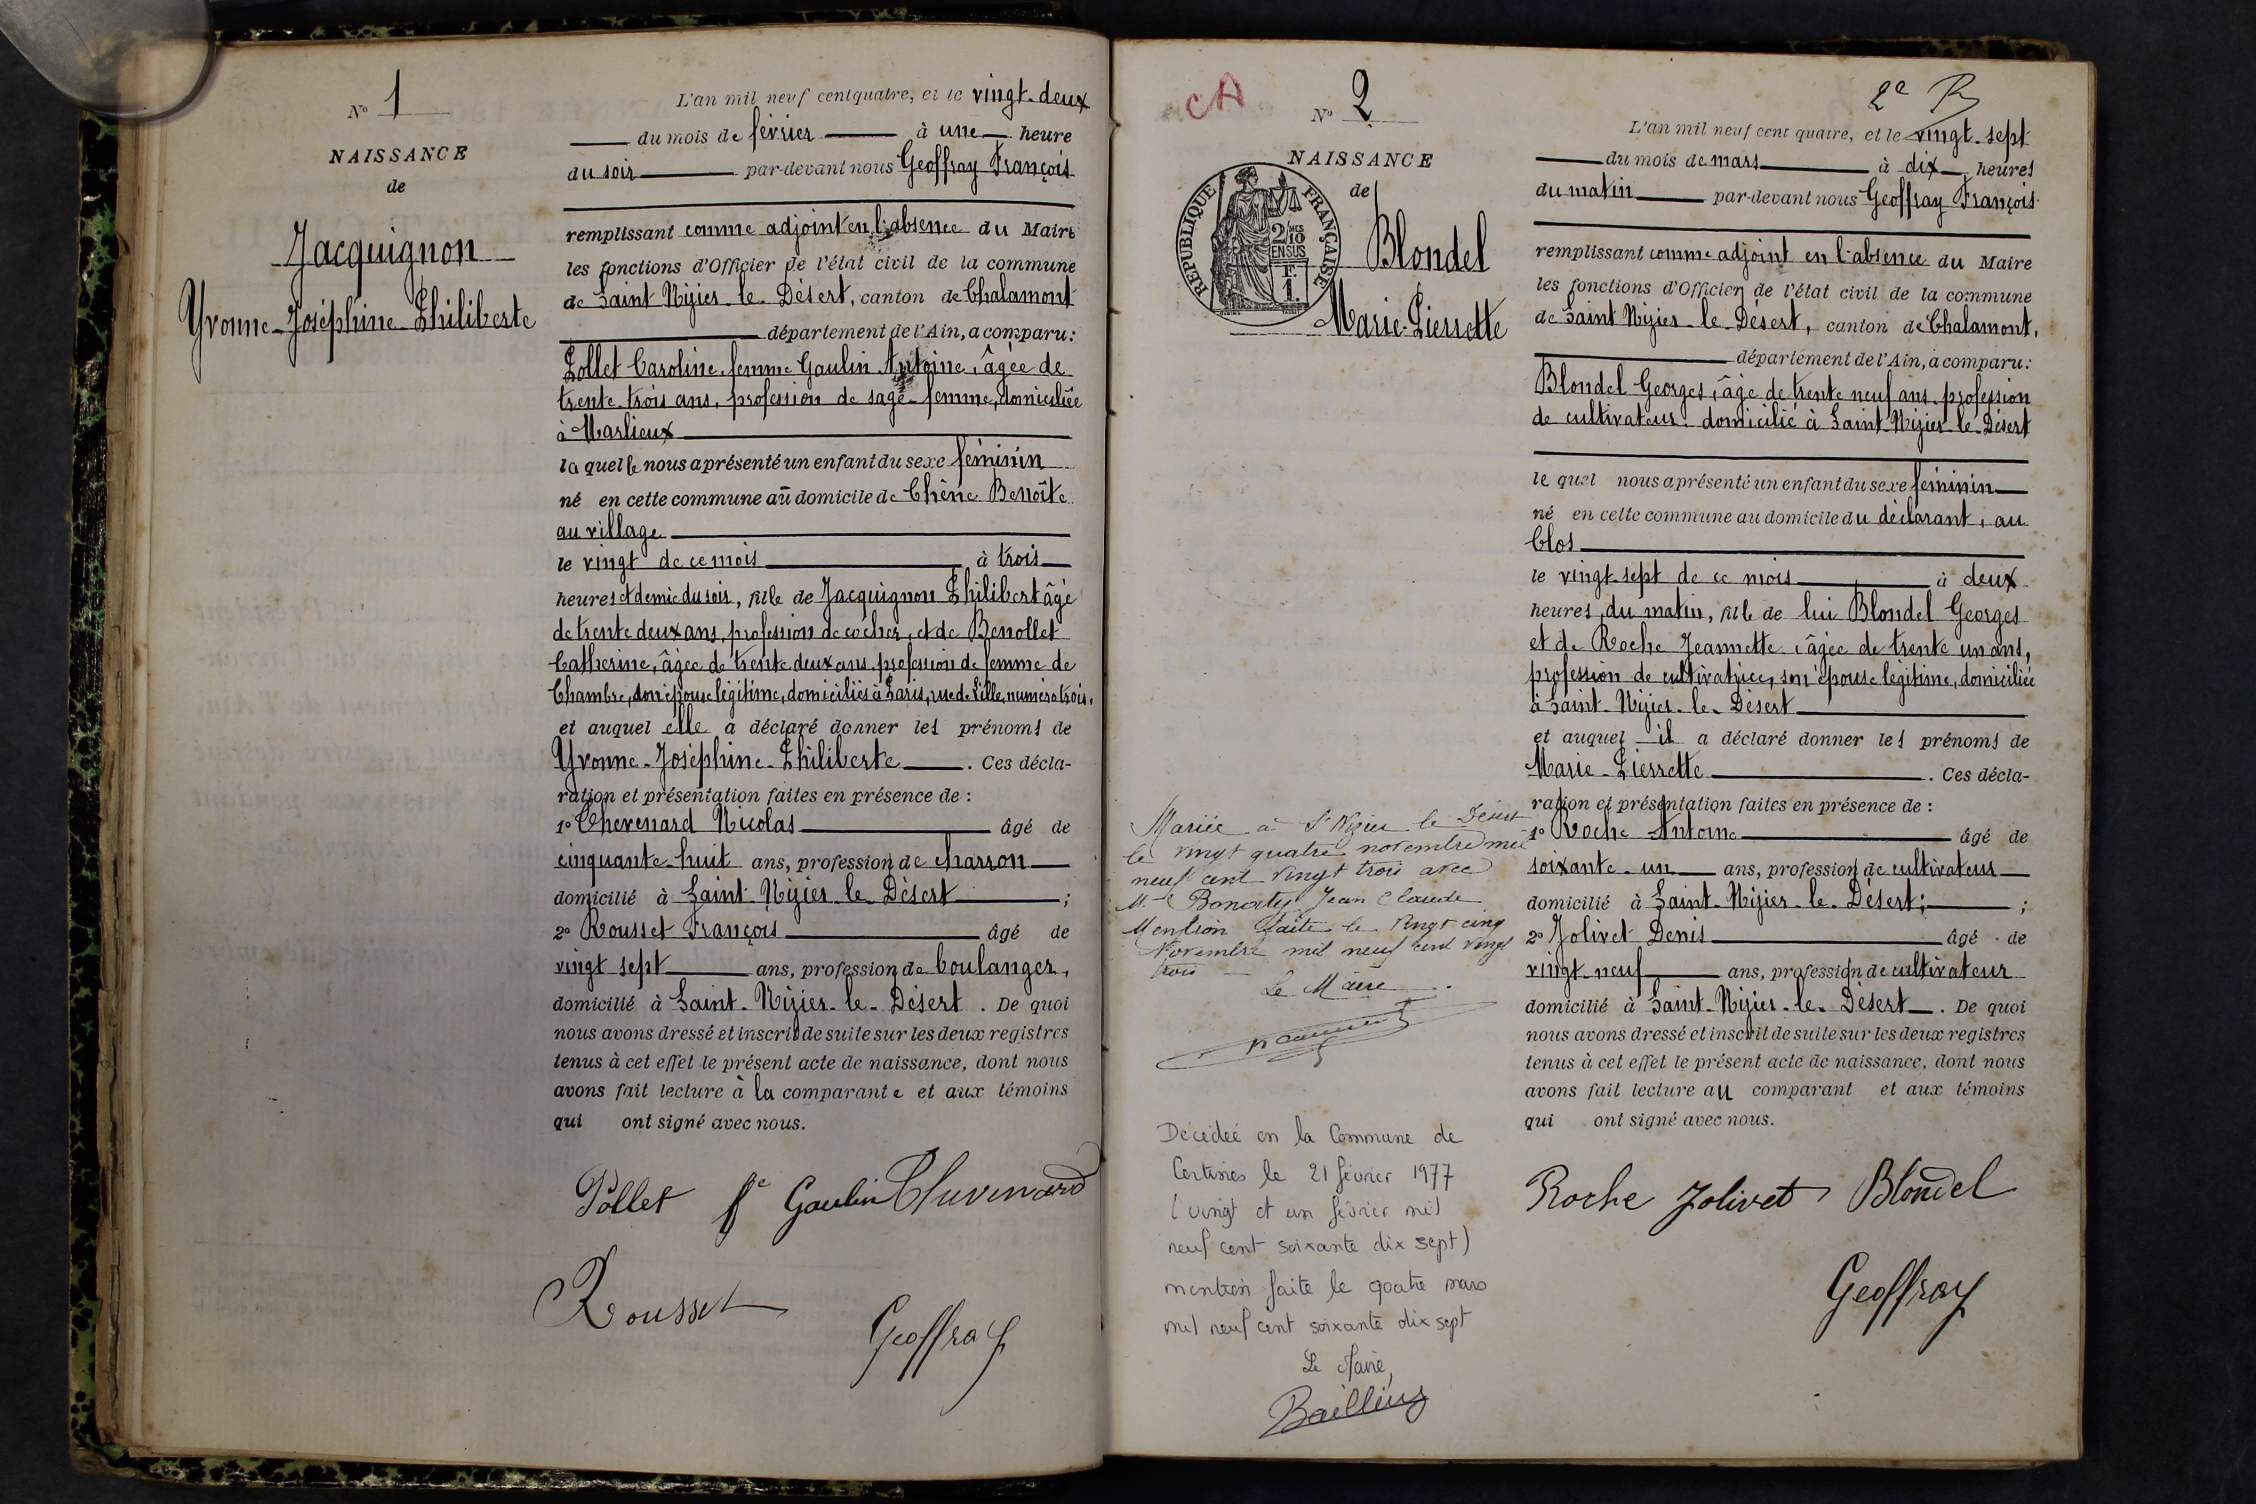 N° 1
NAISSANCE
de
Jacquignon
Yvonne-Joséphine-Philiberte
L'an mil neuf cent quatre, et le vingt-deux
du mois de février à une heure
du soir par-devant nous Geoffray François
remplissant comme adjoint en l'absence du Maire
les fonctions d'Officier de l'état civil de la commune
de Saint Nizier le Désert, canton de Chalamont
département de l'Ain, a comparu :
Pollet Caroline, femme Gaulin Antoine, âgée de
trente trois ans, profession de sage-femme, domiciliée
à Marlieux
laquelle nous a présenté un enfant du sexe féminin
né en cette commune au domicile de Chêne Benoîte
au village
le vingt de ce mois à trois
heures et demie du soir, fille de Jacquignon Philibert âgé
de trente deux ans, profession de cocher, et de Benollet
Catherine, âgée de trente deux ans, profession de femme de
Chambre, son épouse légitime, domiciliés à Paris, rue de Lille, numéro trois,
et auquel elle a déclaré donner les prénoms de
Yvonne-Joséphine-Philiberte. Ces décla-
ration et présentation faites en présence de :
1° Chevenard Nicolas âgé de
cinquante-huit ans, profession de charron
domicilié à Saint-Nizier le Désert ;
2° Rousset François âgé de
vingt sept ans, profession de boulanger,
domicilié à Saint-Nizier-le-Désert. De quoi
nous avons dressé et inscrit de suite sur les deux registres
tenus à cet effet le présent acte de naissance, dont nous
avons fait lecture à la comparante et aux témoins
qui ont signé avec nous.
Pollet fe Gaulin Chevenard
Rousset
Geoffray
A
N° 2
2e
NAISSANCE
de
RÉPUBLIQUE FRANÇAISE
2/10 EN SUS
1 F.
Blondel
Marie-Pierrette
L'an mil neuf cent quatre, et le vingt-sept
du mois de mars à dix heures
du matin par-devant nous Geoffray François
remplissant comme adjoint en l'absence du Maire
les fonctions d'Officier de l'état civil de la commune
de Saint Nizier-le-Désert, canton de Chalamont,
département de l'Ain, a comparu :
Blondel Georges, âgé de trente neuf ans, profession
de cultivateur domicilié à Saint-Nizier-le-Désert
lequel nous a présenté un enfant du sexe féminin
né en cette commune au domicile du déclarant, au
Clos
le vingt-sept de ce mois à deux
heures du matin, fille de lui Blondel Georges
et de Roche Jeannette, âgée de trente un ans,
profession de cultivatrice, son épouse légitime, domiciliée
à Saint-Nizier-le-Désert
et auquel il a déclaré donner les prénoms de
Marie-Pierrette. Ces décla-
ration et présentation faites en présence de :
1° Roche Antoine âgé de
soixante-un ans, profession de cultivateur
domicilié à Saint-Nizier-le-Désert ;
2° Jolivet Denis âgé de
vingt-neuf ans, profession de cultivateur
domicilié à Saint-Nizier-le-Désert. De quoi
nous avons dressé et inscrit de suite sur les deux registres
tenus à cet effet le présent acte de naissance, dont nous
avons fait lecture au comparant et aux témoins
qui ont signé avec nous.
Roche Jolivet Blondel
Geoffray
Mariée à St Nizier le Désert
le vingt quatre novembre mil
neuf cent vingt trois avec
Mr Jean Claude
Mention faite le vingt cinq
Novembre mil neuf cent vingt
trois
Le Maire
Décédée en la Commune de
Certines le 21 février 1977
(vingt et un février mil
neuf cent soixante dix sept)
mention faite le quatre mars
mil neuf cent soixante dix sept
Le Maire,